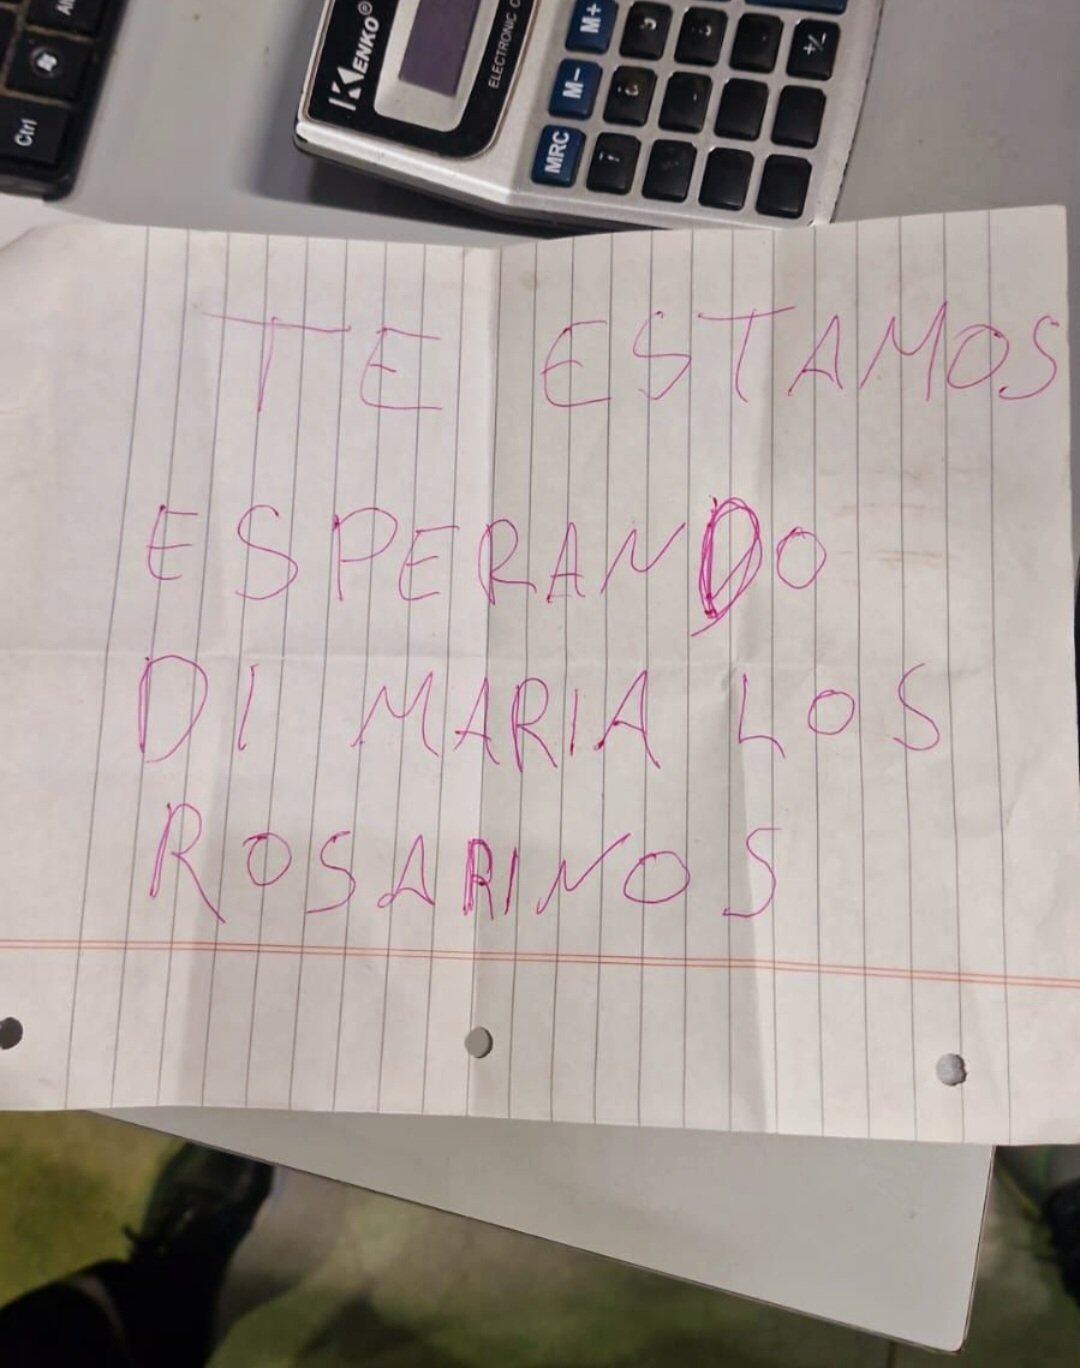 KENKO®
ELECTRONIC C
M+
M-
MRC
+/-
Ctrl
TE ESTAMOS
ESPERANDO
DI MARIA LOS
ROSARINOS